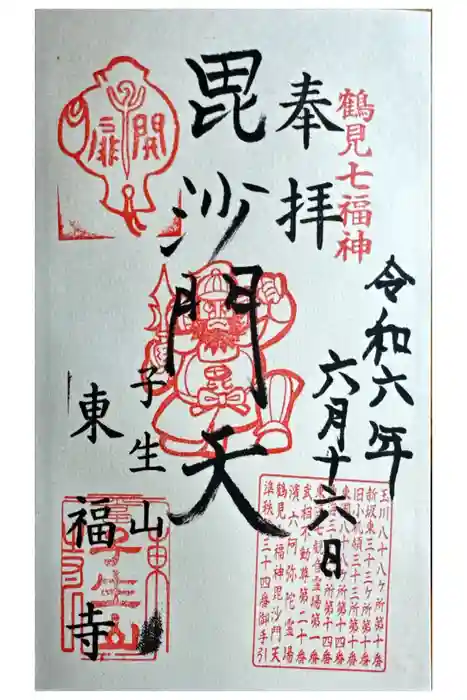 鶴見七福神
奉拝
令和六年
六月十六日
毘沙門天
子生山
東福寺
開扉
子生山
玉川八十八ヶ所第十番
新坂東三十三ヶ所第十番
旧小机領三十三所第十番
東国八十八ヶ所第十四番
武相不動尊第二十番
鶴見七福神毘沙門天
準秩父三十四番御手引